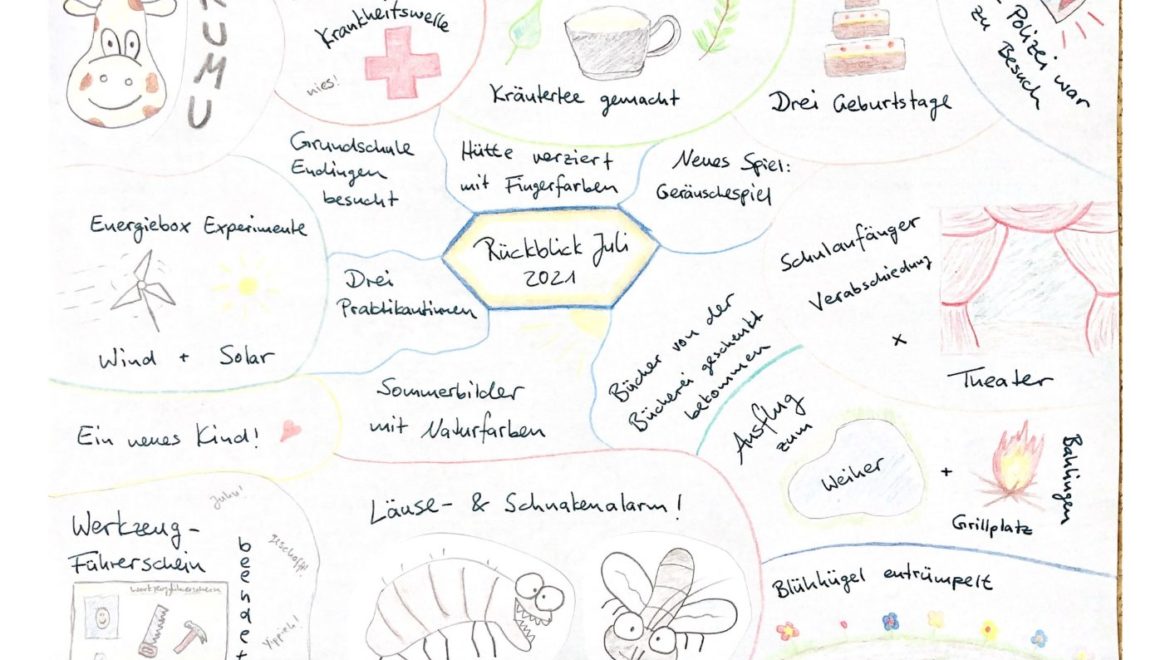 UMU
Krankheitswelle
nies!
Kräutertee gemacht
Drei Geburtstage
Polizei war
zu Besuch
Grundschule
Endingen
besucht
Hütte verziert
mit Fingerfarben
Neues Spiel:
Geräuschespiel
Energiebox Experimente
Wind + Solar
Drei
Praktikantinnen
Rückblick Juli
2021
Schulanfänger
Verabschiedung
x
Theater
Bücher von der
Bücherei geschenkt
bekommen
Sommerbilder
mit Naturfarben
Ein neues Kind!
Ausflug
zum
Weiher
+
Grillplatz
Bahlingen
Werkzeug-
Führerschein
beendet
Juhu!
geschafft!
Yippieh!
Werkzeugführerschein
Läuse- & Schnakenalarm!
Blühhügel entrümpelt